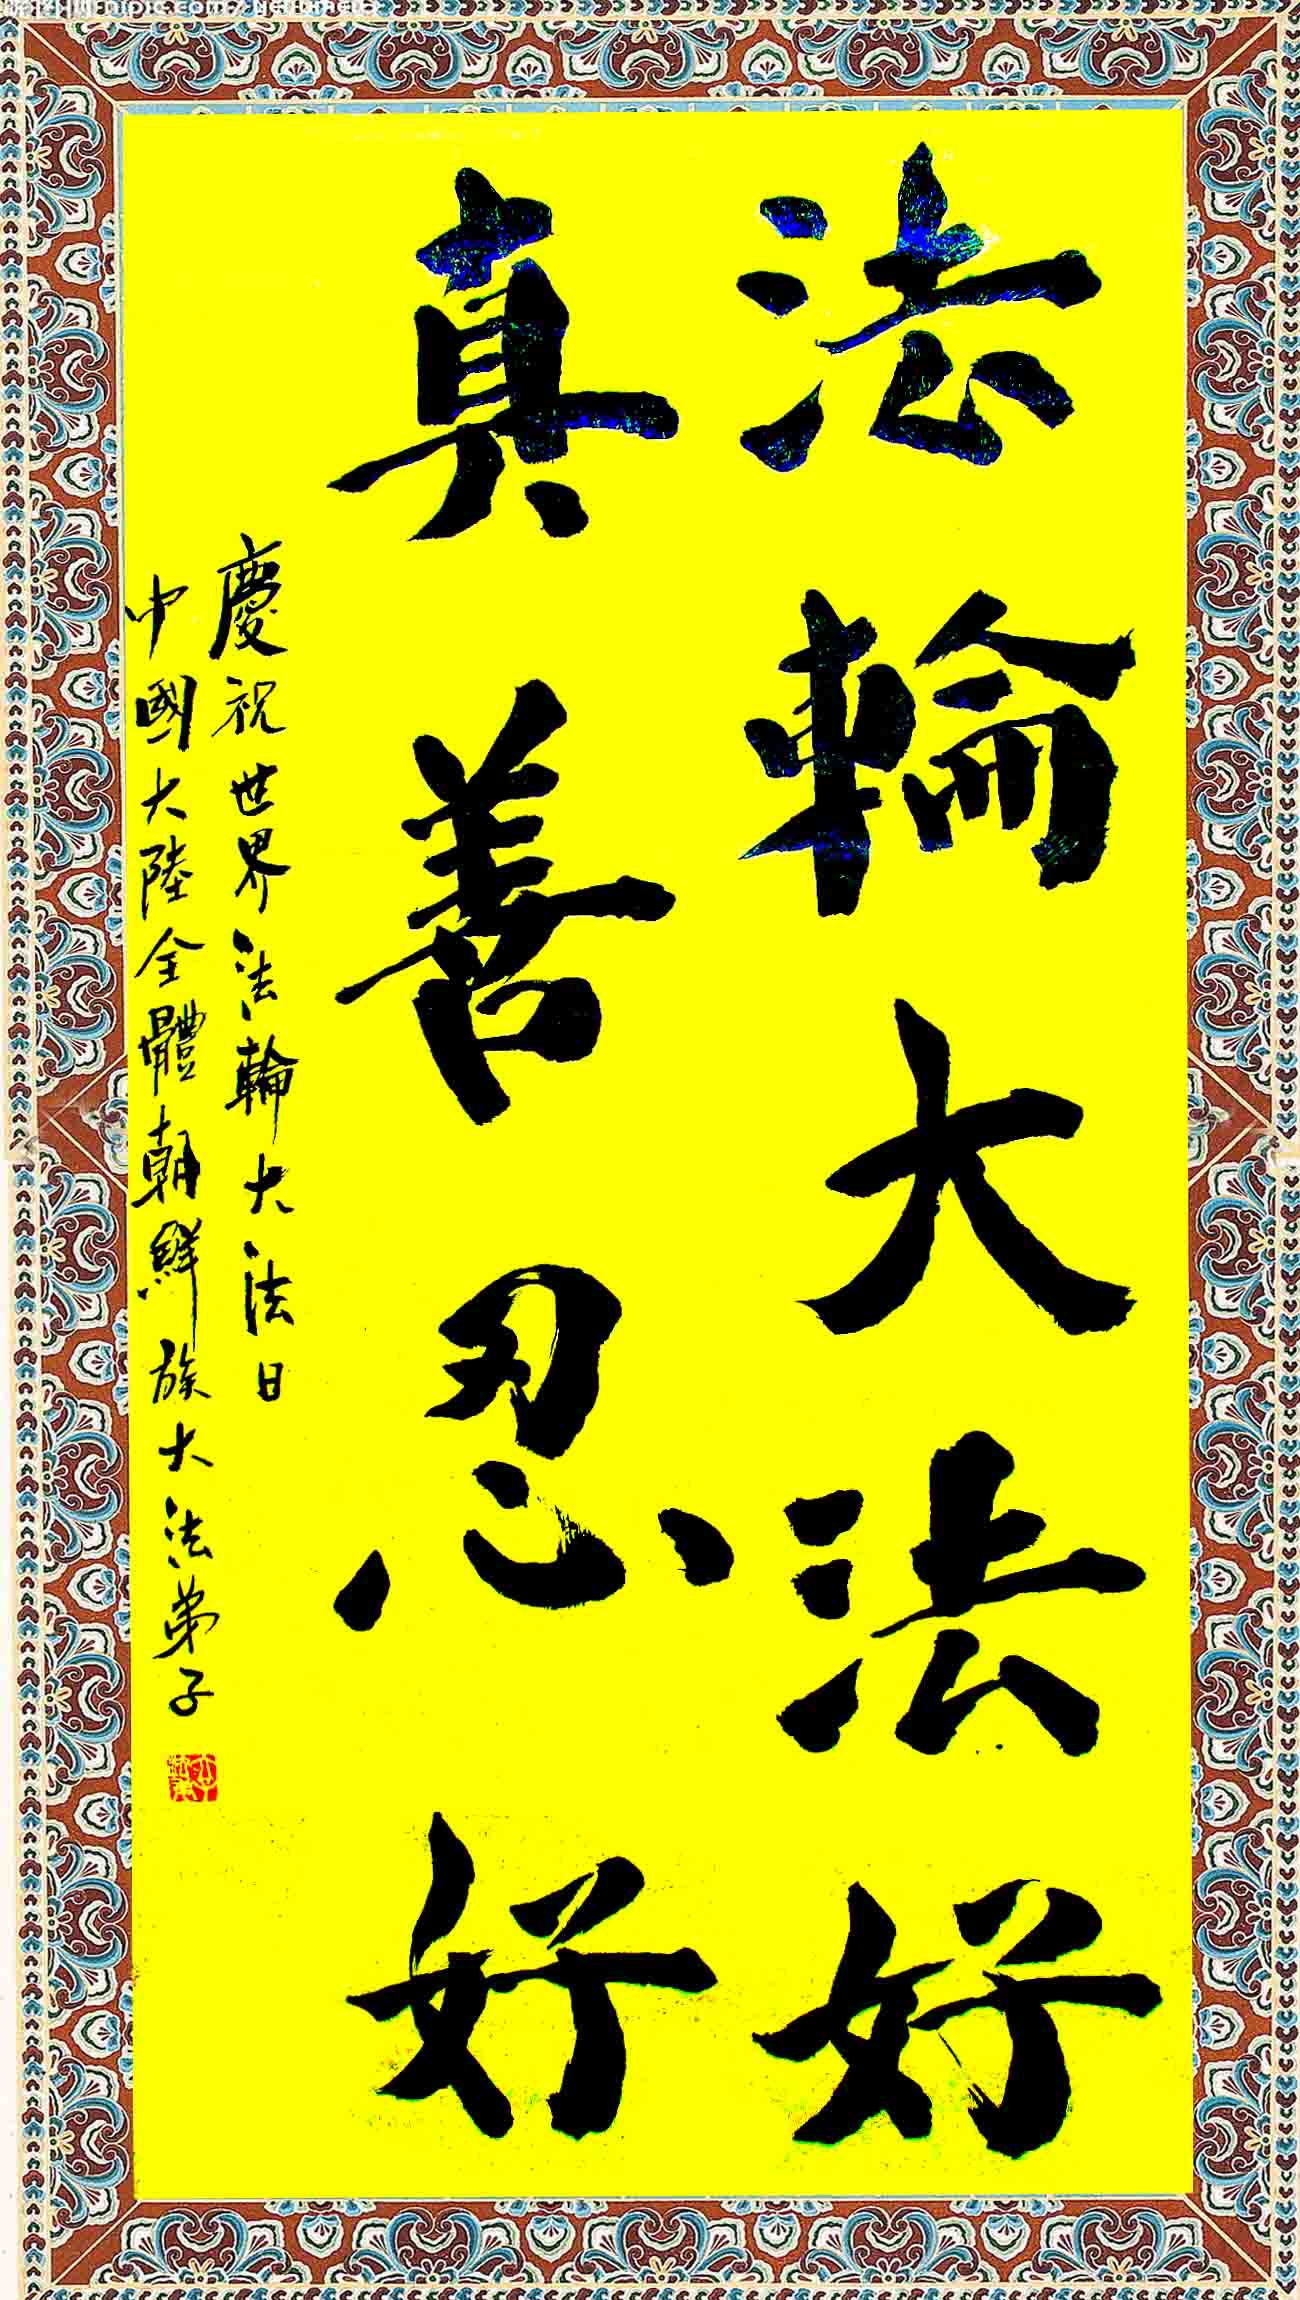 法輪大法好
真善忍好
慶祝世界法輪大法日
中國大陸全體朝鮮族大法弟子